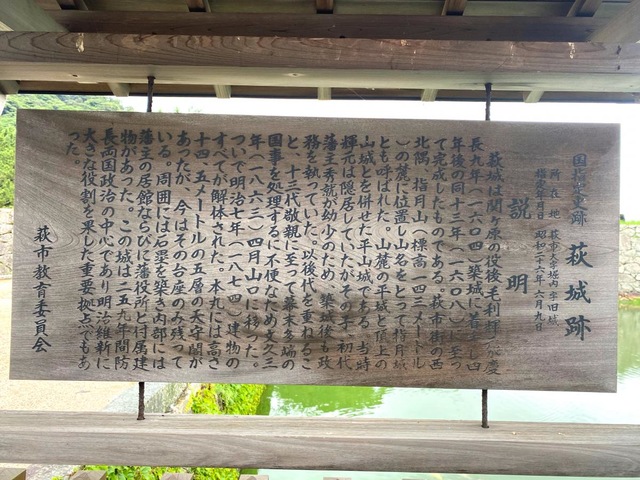 国指定史跡 萩城跡
所在地 萩市大字堀内字旧城
指定年月日 昭和二十六年六月九日
説明
萩城は関ヶ原の役後毛利輝元が慶
長九年(一六〇四)築城に着手し四
年後の同十三年(一六〇八)に至っ
て完成したものである。萩市街の西
北隅、指月山(標高一四三メートル
)の麓に位置し山名をとって指月城
とも呼ばれた。山麓の平城と頂上の
山城とを併せた平山城である。当時
輝元は隠居していたがその子初代
藩主秀就が幼少のため、築城後も政
務を執っていた。以後代を重ねるこ
と、十三代敬親に至って幕末多端の
国事を処理するに不便なため文久三
年(一八六三)四月山口に移った。
ついで明治七年(一八七四)建物の
すべてが解体された。本丸には高さ
十四・五メートルの五層の天守閣が
あったが、今はその台座のみ残って
いる。周囲には石塁を築き内部には
藩主の居館ならびに藩役所と付属建
物があった。この城は二五九年間防
長両国政治の中心であり明治維新に
大きな役割を果した重要拠点でもあ
った。
萩市教育委員会